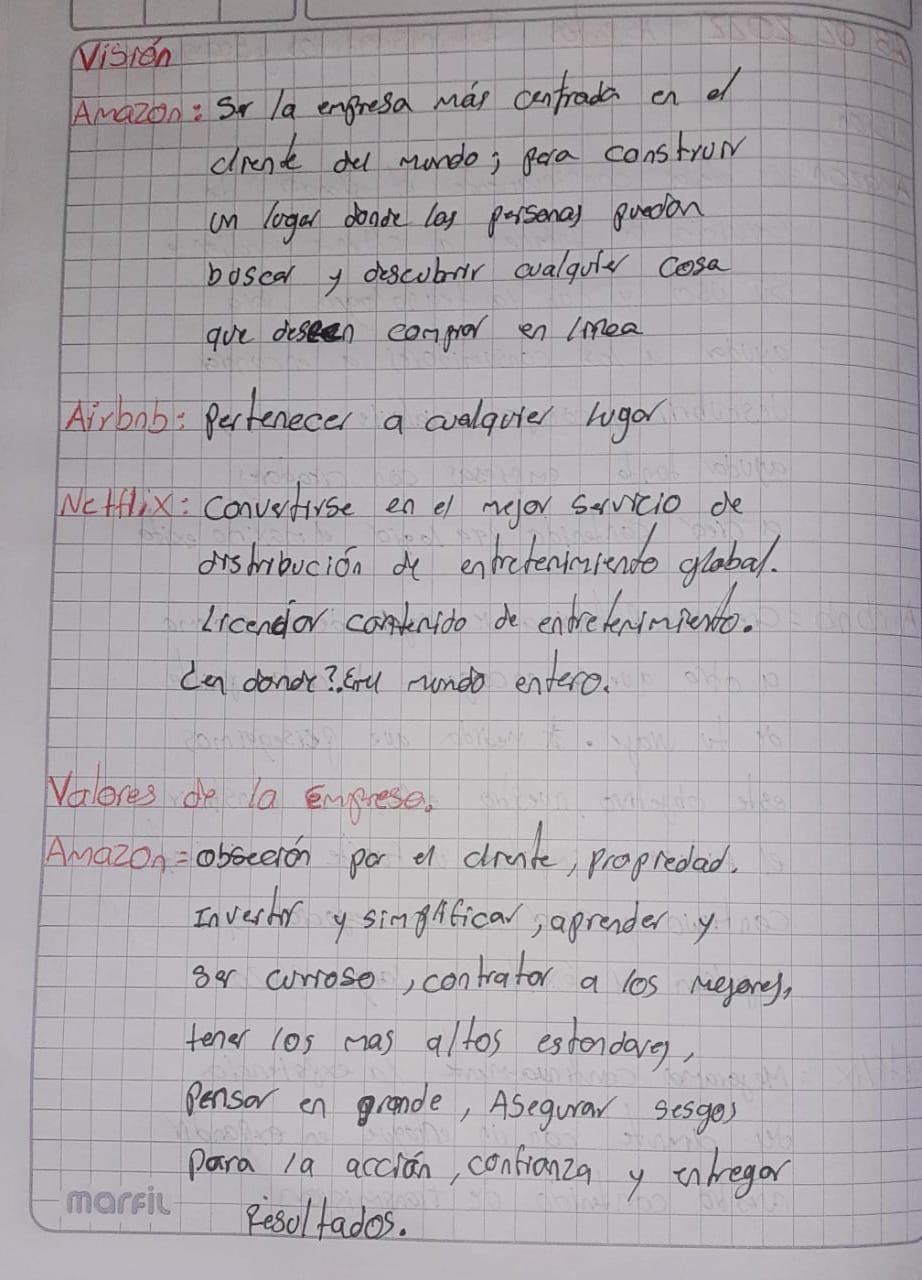 Visión
Amazon: Ser la empresa más centrada en el
cliente del mundo; para construir
un lugar donde las personas puedan
buscar y descubrir cualquier cosa
que deseen comprar en línea
Airbnb: Pertenecer a cualquier lugar
Netflix: Convertirse en el mejor servicio de
distribución de entretenimiento global.
Licenciar contenido de entretenimiento.
¿en donde? En el mundo entero.
Valores de la Empresa.
Amazon = obseción por el cliente, propiedad.
Invertir y simplificar, aprender y
ser curioso, contratar a los mejores,
tener los mas altos estandares,
Pensar en grande, Asegurar sesgos
para la acción, confianza y entregar
Resultados.
marfil